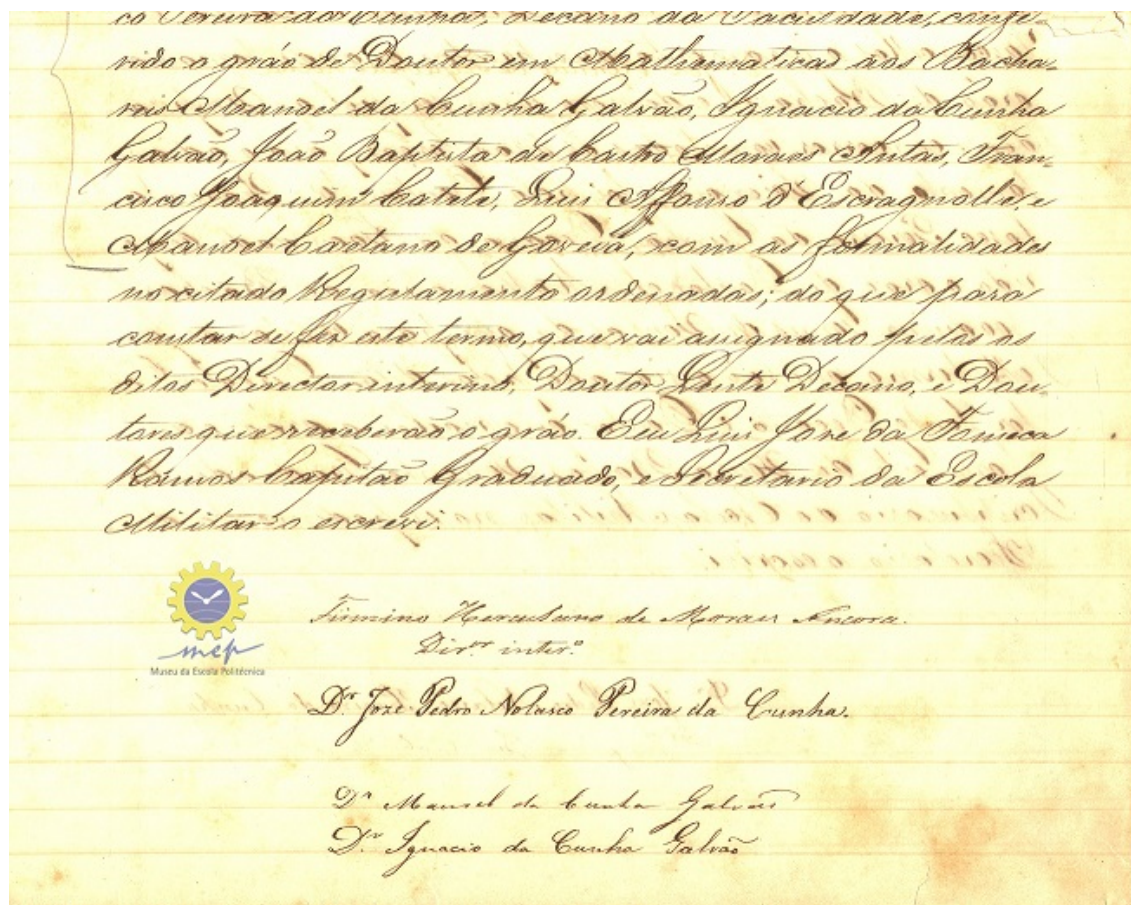 co Pereira da Cunha, Decano da Faculdade, confe-
rido o gráo de Doutor em Mathematicas aos Bacha-
reis Manoel da Cunha Galvão, Ignacio da Cunha
Galvão, João Baptista de Castro Moraes Antas, Fran-
cisco Joaquim Catete, Luis Affonso d'Escragnolle, e
Manoel Caetano de Gouveia, com as formalidades
no citado Regulamento ordenadas; do que para
constar se fez este termo, que vai assignado pelos os
ditos Director interino, Doutor Lente Decano, e Dou-
tores que receberão o gráo. Eu Luis Joze da Fonseca
Ramos Capitão Graduado, e Secretario da Escola
Militar o escrevi.
mep
Museu da Escola Politécnica
Firmino Herculano de Moraes Ancora.
Dir.or inter.o
Dr Joze Pedro Nolasco Pereira da Cunha.
Dr Manoel da Cunha Galvão
Dr Ignacio da Cunha Galvão